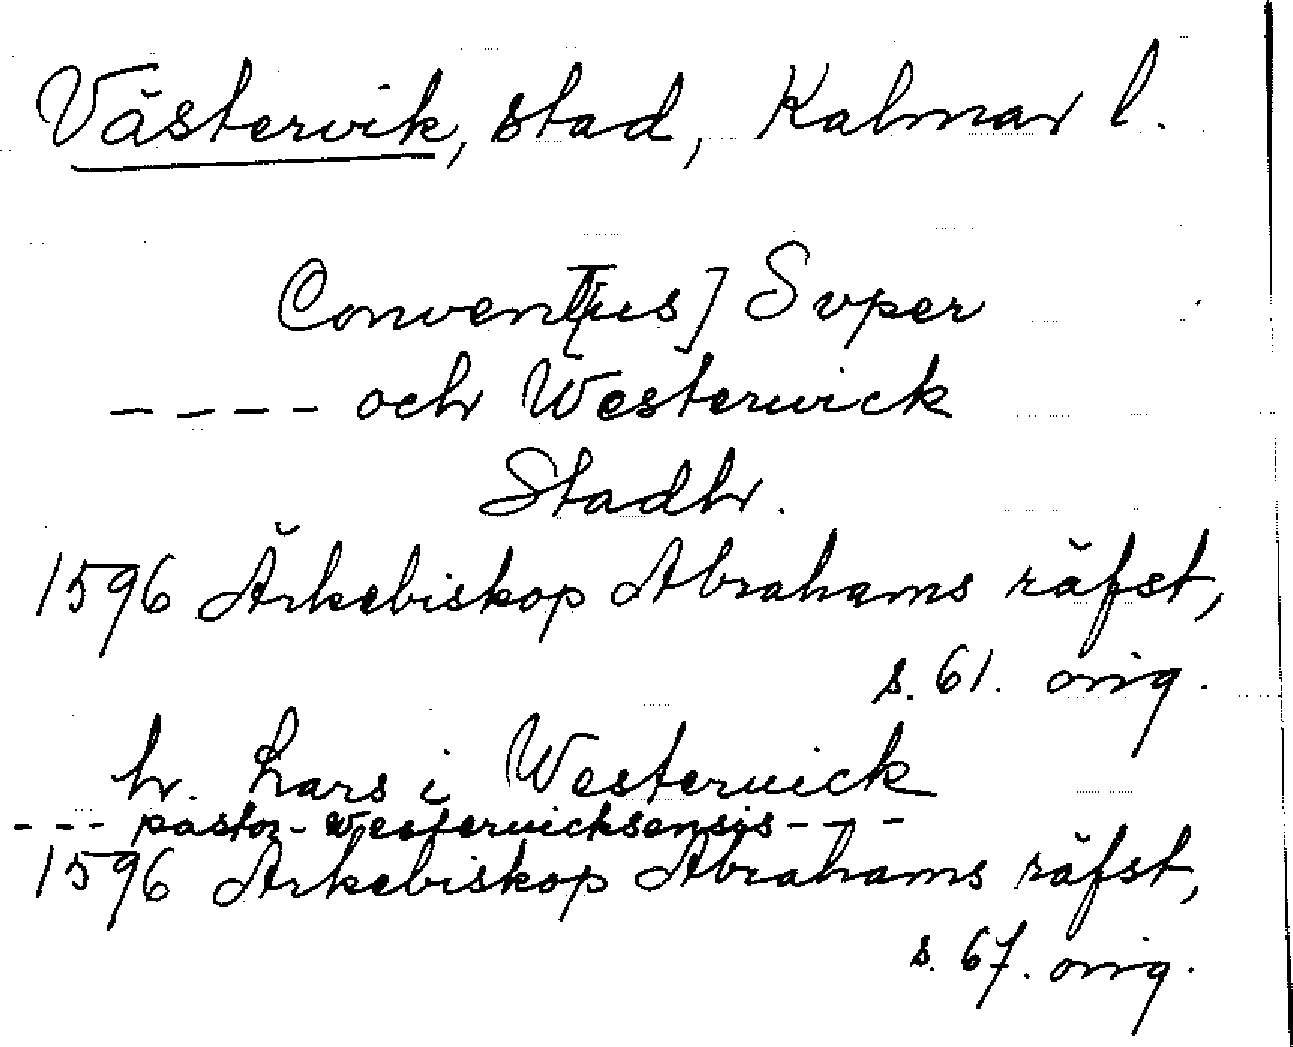 Västervik, stad, Kalmar l.
Convent[us] Svper
---- och Westerwick
Stadh.
1596 Ärkebiskop Abrahams räfst,
s. 61. orig.
hr. Lars i Westerwick
--- pastor - Westerwicksensis - - -
1596 Ärkebiskop Abrahams räfst,
s. 67. orig.